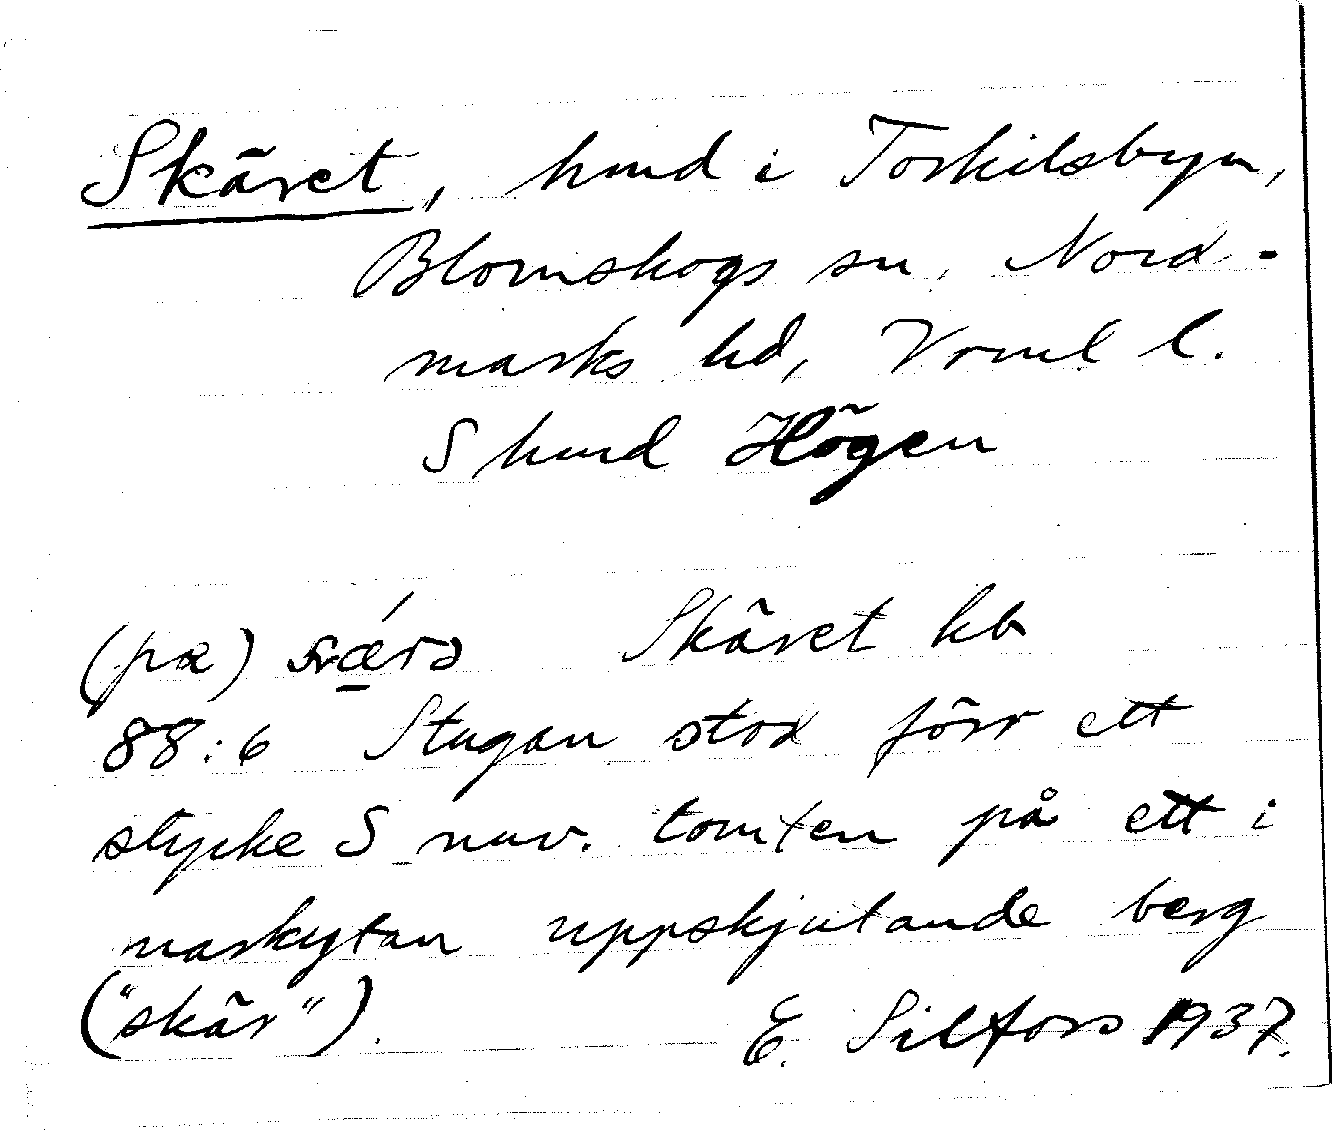 Skäret, hmd i Torkilsbyn,
Blomskogs sn, Nord-
marks hd, Vrml l.
S hmd Högen
(pæ) Skäret kb
88:6 Stugan stod förr ett
stycke S nuv. tomten på ett i
markytan uppskjutande berg
("skär"). E. Silfors 1937.